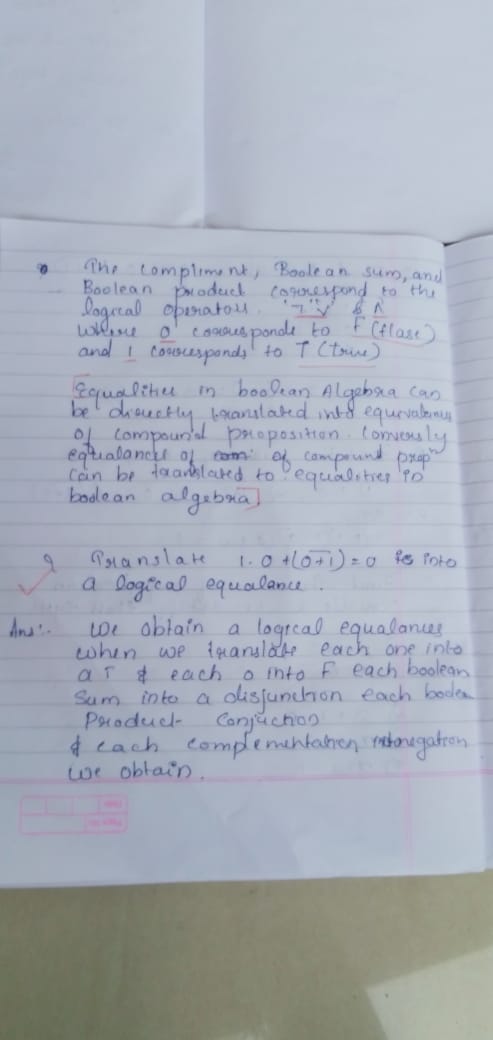 The compliment, Boolean sum, and
Boolean product correspond to the
logical operators. "¬" "∨" & ∧
where 0 corresponds to F (flase)
and 1 corresponds to T (true)
[Equalities in boolean Algebra can
be directly translated into equivalences
of compound proposition. Conversly
equalances of of compound propⁿ
can be translated to equalities in
boolean algebra]
Q Translate 1.0 + (\overline{0+1}) = 0 into
a logical equalance.
Ans:- We obtain a logical equalances
when we translate each one into
a T & each 0 into F each boolean
Sum into a disjunction each
Product Conjuction
& each complementation negation
we obtain.